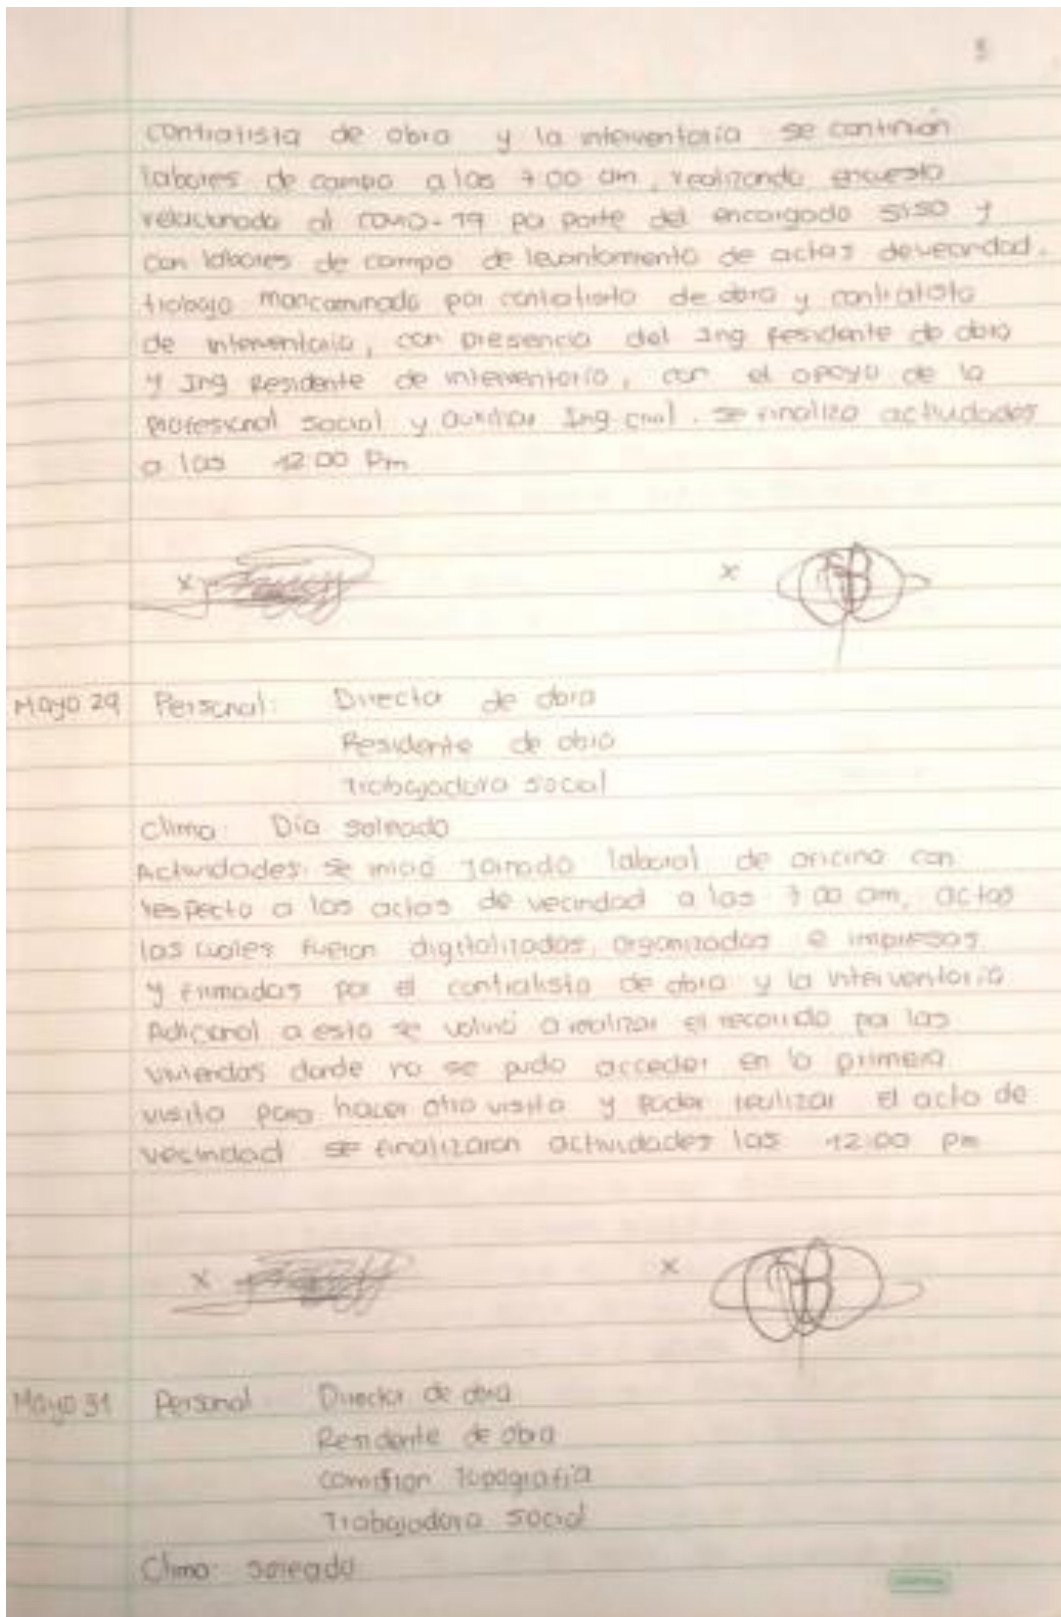 contratista de obra y la interventoria se continuan
labores de campo a las 7:00 am, realizando encuesta
relacionada al COVID-19 por parte del encargado SISO y
con labores de campo de levantamiento de actas de vecindad.
trabajo mancomunado por contratista de obra y contratista
de interventoria, con presencia del Ing Residente de obra
y Ing Residente de interventoria, con el apoyo de la
profesional social y auxiliar Ing civil. se finaliza actividades
a las 12:00 Pm
x
x
Mayo 29 Personal: Director de obra
Residente de obra
Trabajadora social
Clima: Día soleado
Actividades: Se inició jornada laboral de oficina con
respecto a las actas de vecindad a las 7:00 am, actas
las cuales fueron digitalizadas, organizadas e impresas
y firmadas por el contratista de obra y la interventoria
Adicional a esto se volvió a realizar el recorrido por las
viviendas donde no se pudo acceder en la primera
visita para hacer otra visita y poder realizar el acta de
vecindad se finalizaron actividades las 12:00 pm
x
x
Mayo 31 Personal: Director de obra
Residente de obra
Comision Topografia
Trabajadora social
Clima: soleado